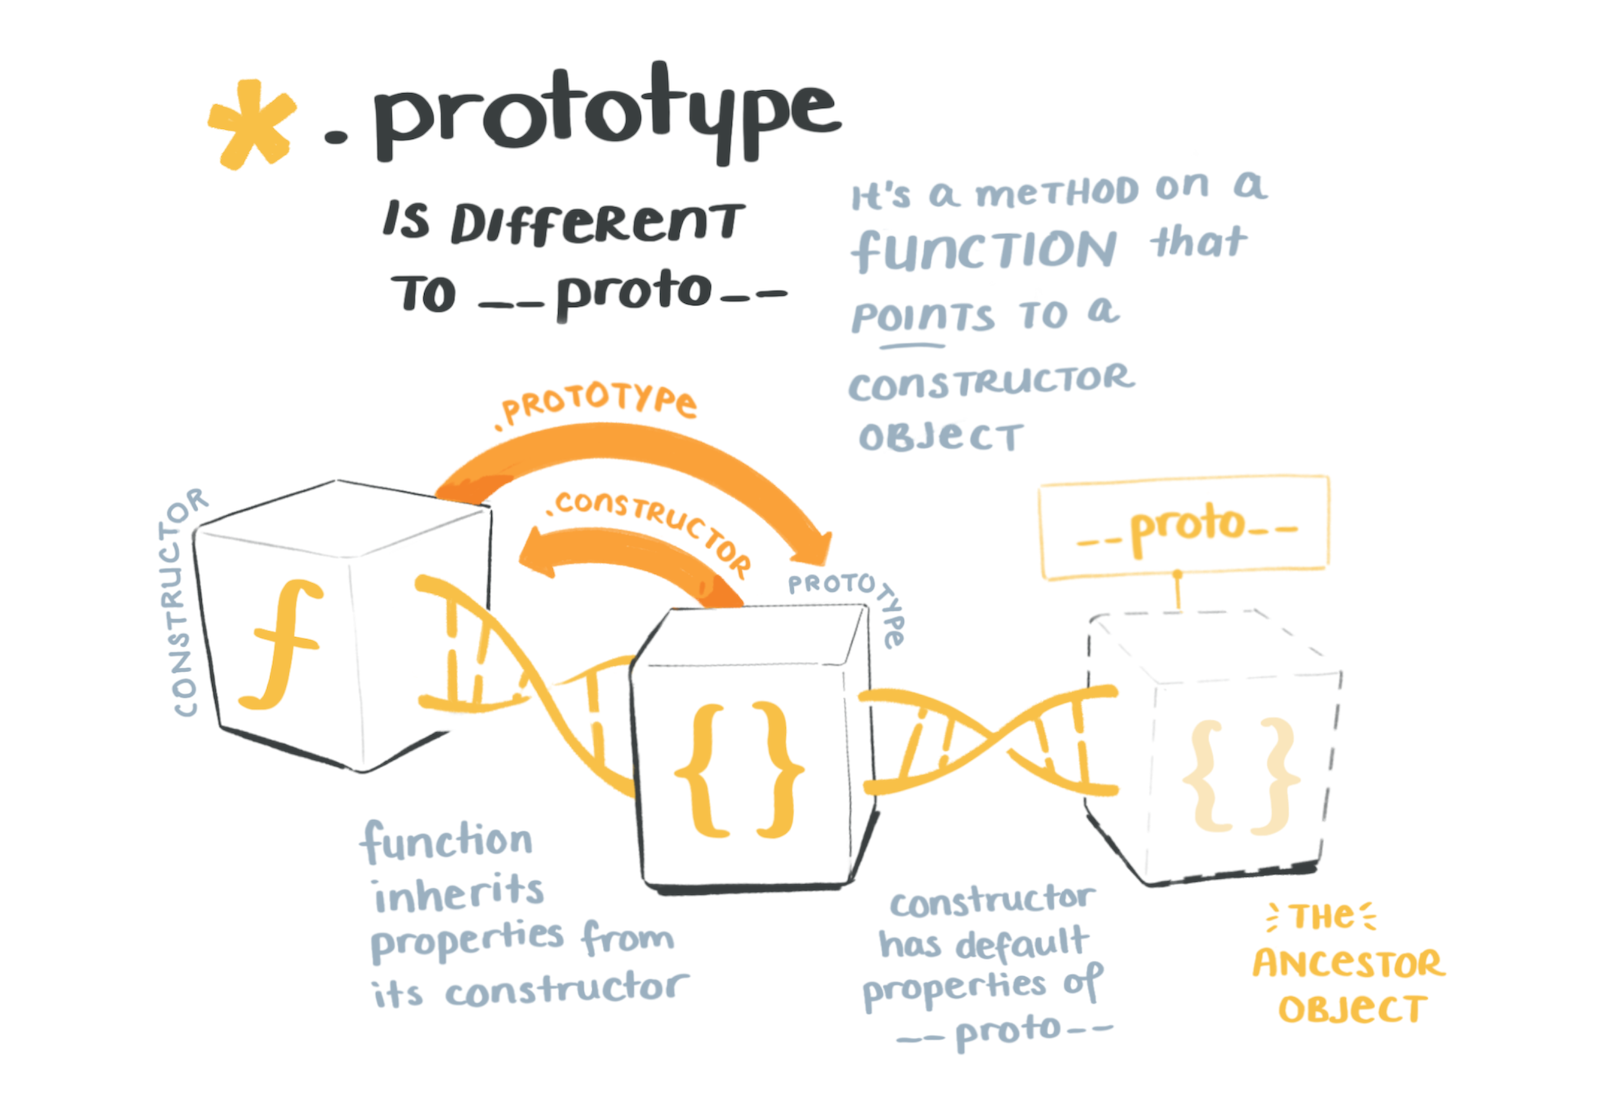 * .prototype
IS DIFFERENT
TO __proto__
It's a METHOD on a
FUNCTION that
POINTS TO a
CONSTRUCTOR
OBJECT
.PROTOTYPE
.CONSTRUCTOR
CONSTRUCTOR
PROTOTYPE
__proto__
f
{}
{}
function
inherits
properties from
its constructor
constructor
has default
properties of
__proto__
THE
ANCESTOR
OBJECT